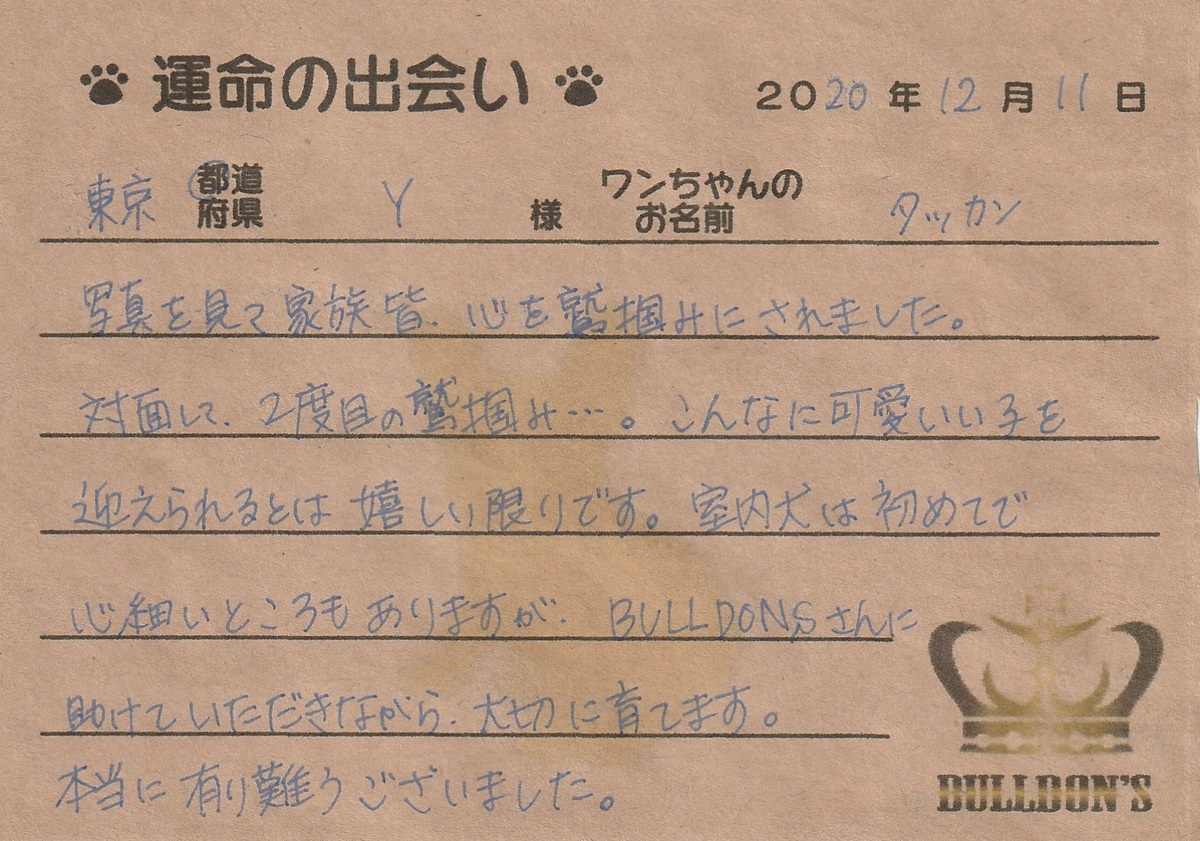 運命の出会い 2020年12月11日
東京 都道府県 Y 様 ワンちゃんのお名前 タッカン
写真を見て家族皆、心を鷲掴みにされました。
対面して、2度目の鷲掴み…。こんなに可愛いい子を
迎えられるとは嬉しい限りです。室内犬は初めてで
心細いところもありますが、BULLDONSさんに
助けていただきながら、大切に育てます。
本当に有り難うございました。
BULLDON'S